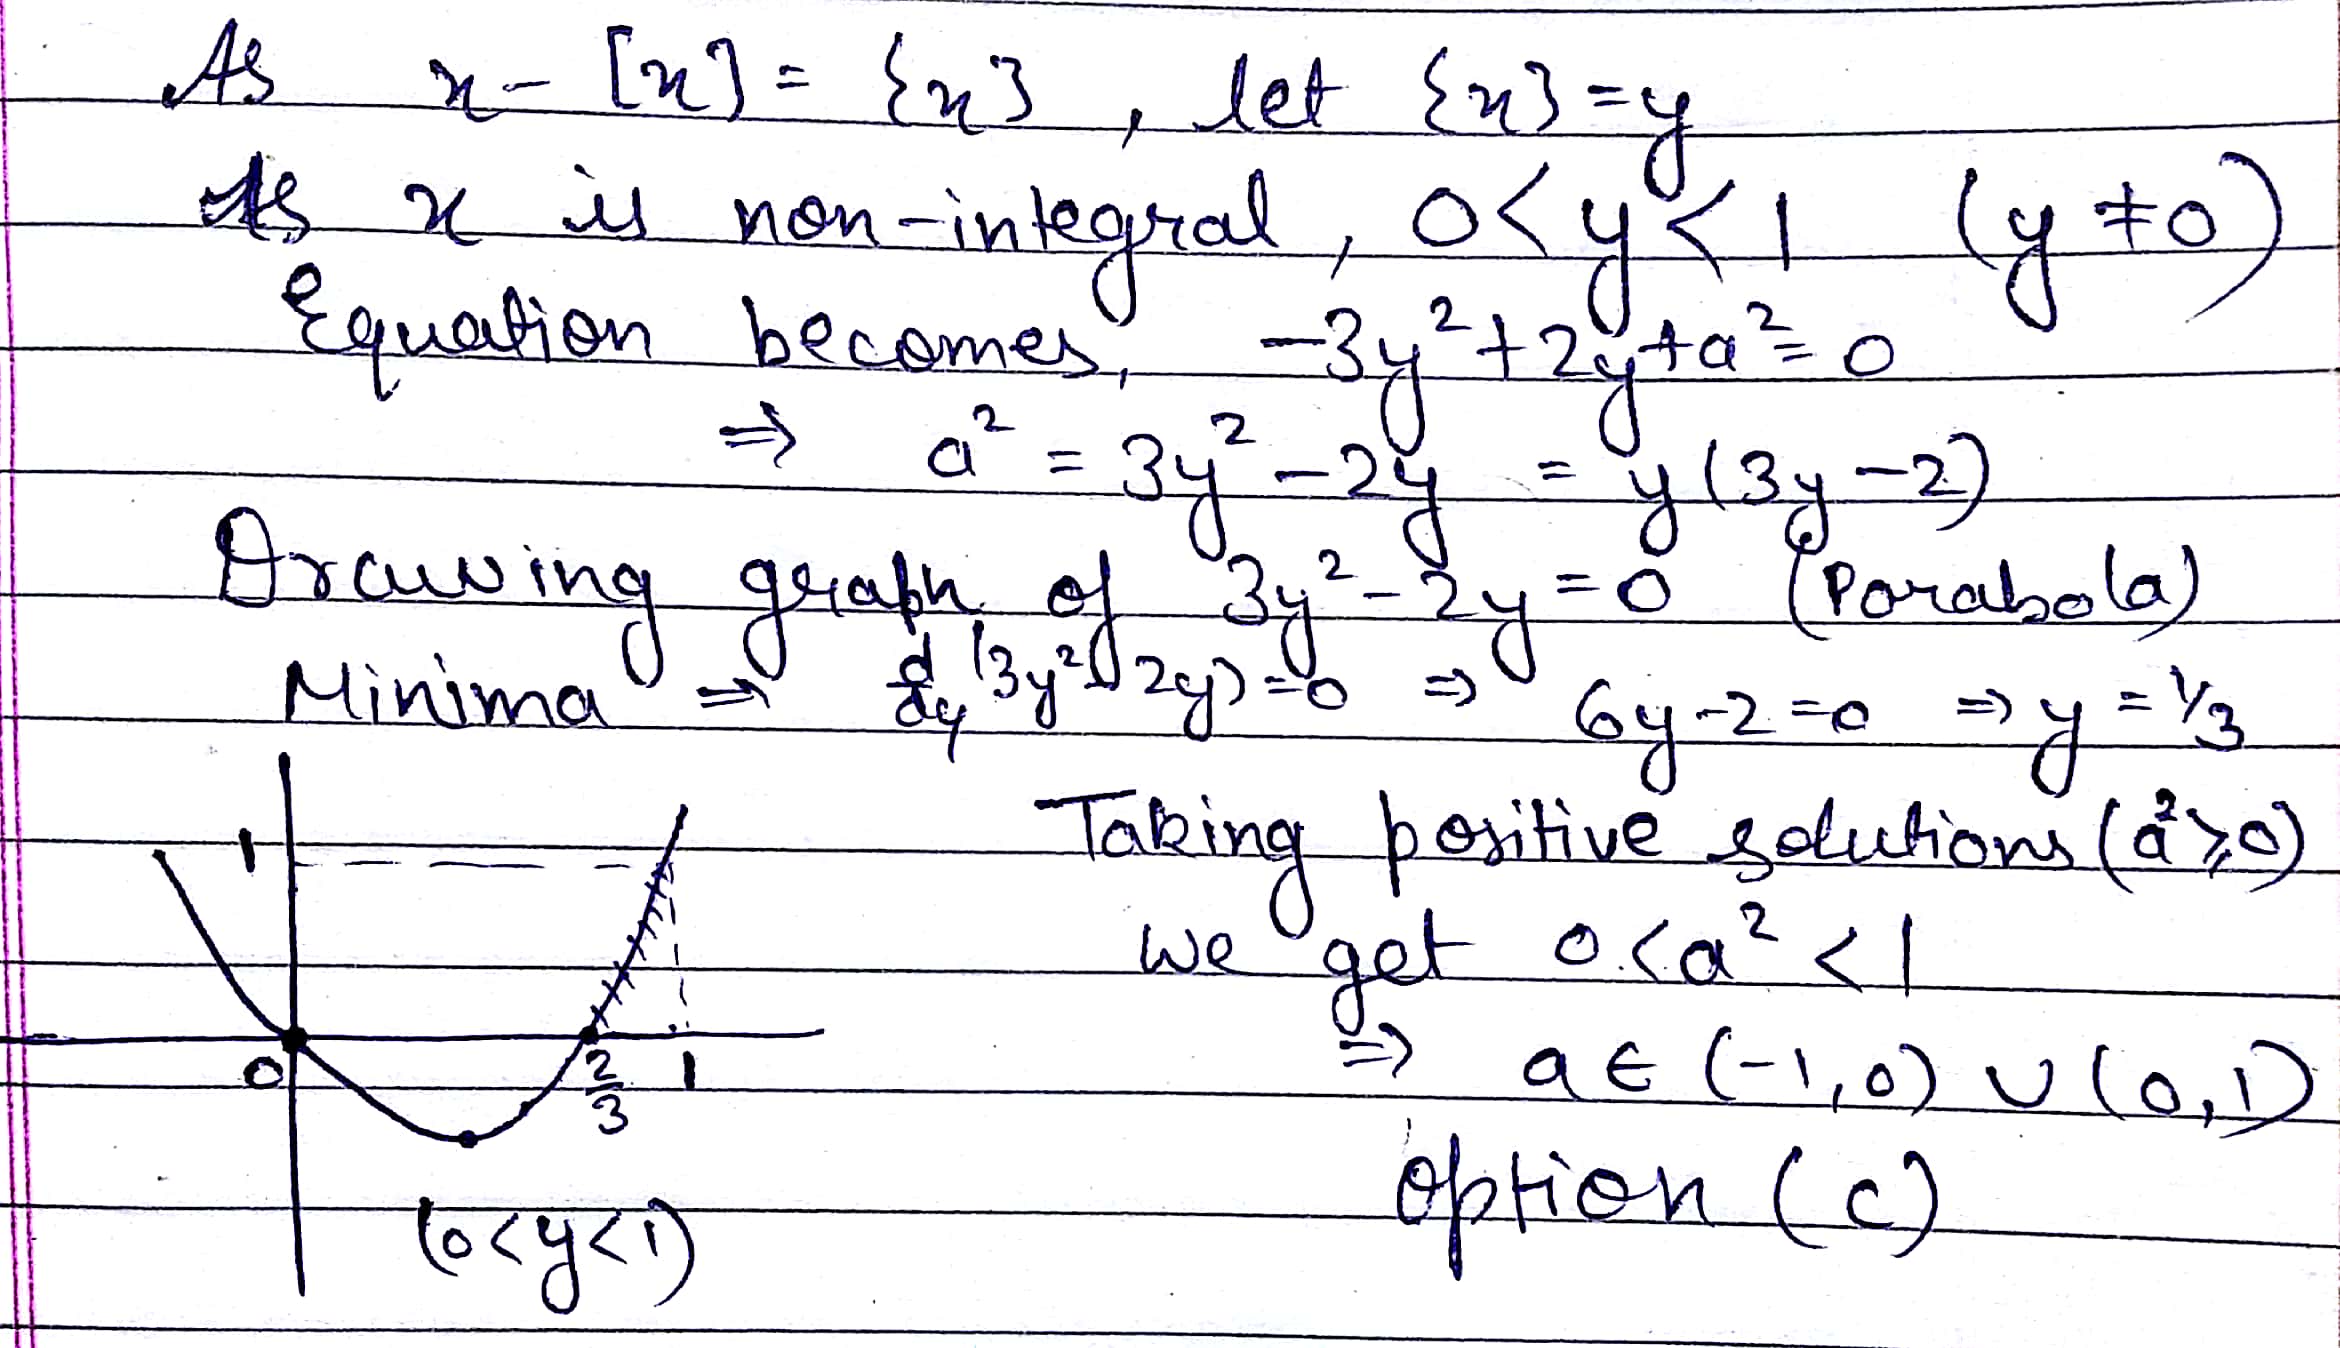 As x - [x] = {x} , let {x} = y
As x is non-integral, 0 < y < 1 (y ≠ 0)
Equation becomes, -3y² + 2y + a² = 0
⇒ a² = 3y² - 2y = y(3y - 2)
Drawing graph of 3y² - 2y = 0 (Parabola)
Minima ⇒ d/dy (3y² - 2y) = 0 ⇒ 6y - 2 = 0 ⇒ y = 1/3
Taking positive solutions (a² ⩾ 0)
we get 0 < a² < 1
⇒ a ∈ (-1, 0) ∪ (0, 1)
option (c)
1
0 2/3 1
(0 < y < 1)